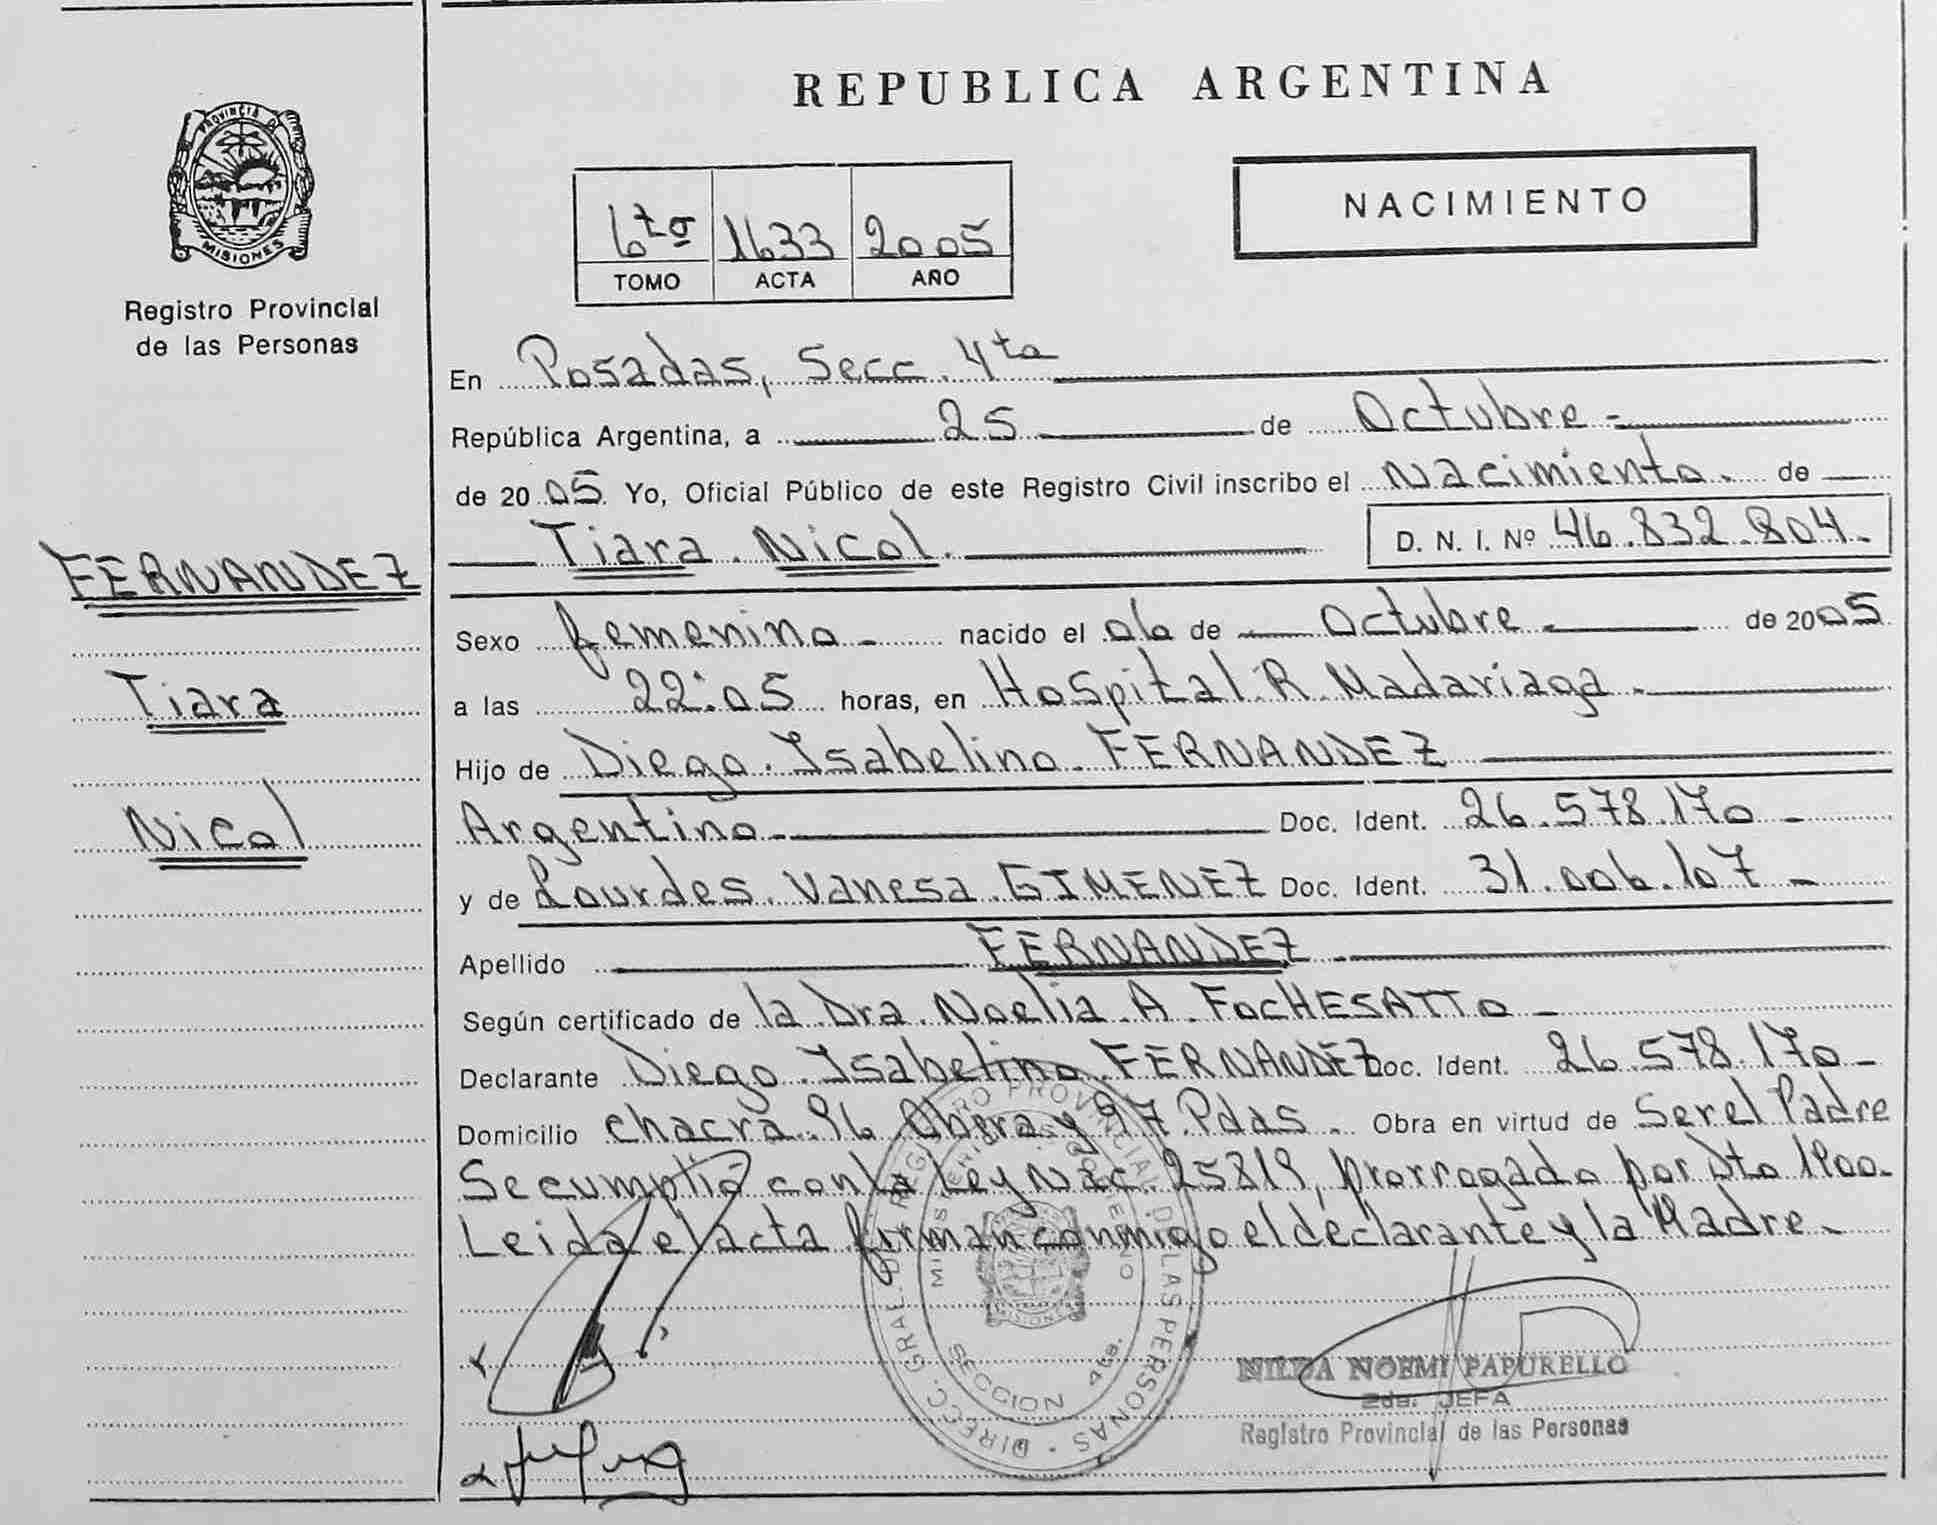 REPUBLICA ARGENTINA
PROVINCIA D
MISIONES
Registro Provincial
de las Personas
NACIMIENTO
6to 1633 2005
TOMO ACTA AÑO
En Posadas, Secc. 4ta
República Argentina, a 25 de Octubre -
de 2005. Yo, Oficial Público de este Registro Civil inscribo el Nacimiento. de
Tiara Nicol. D. N. I. Nº 46.832.804.-
FERNANDEZ
Tiara
Nicol
Sexo femenino - nacido el 06 de Octubre - de 2005
a las 22:05 horas, en Hospital R. Madariaga -
Hijo de Diego Isabelino FERNANDEZ
Argentino - Doc. Ident. 26.578.170 -
y de Lourdes Vanesa GIMENEZ Doc. Ident. 31.006.107 -
Apellido FERNANDEZ -
Según certificado de la Dra. Noelia A. FOCHESATTO -
Declarante Diego Isabelino FERNANDEZ Doc. Ident. 26.578.170 -
Domicilio Chacra 96 Obera y 97 Pdas. - Obra en virtud de Ser el Padre
Se cumplió con la Ley Nac. 25819, prorrogado por Dto 1900.
Leida el acta firman conmigo el declarante y la Madre -
DIRECC. GRAL. DEL REGISTRO PROVINCIAL DE LAS PERSONAS
SECCION 4ta.
MISIONES
NILDA NOEMI PAPURELLO
2da. JEFA
Registro Provincial de las Personas